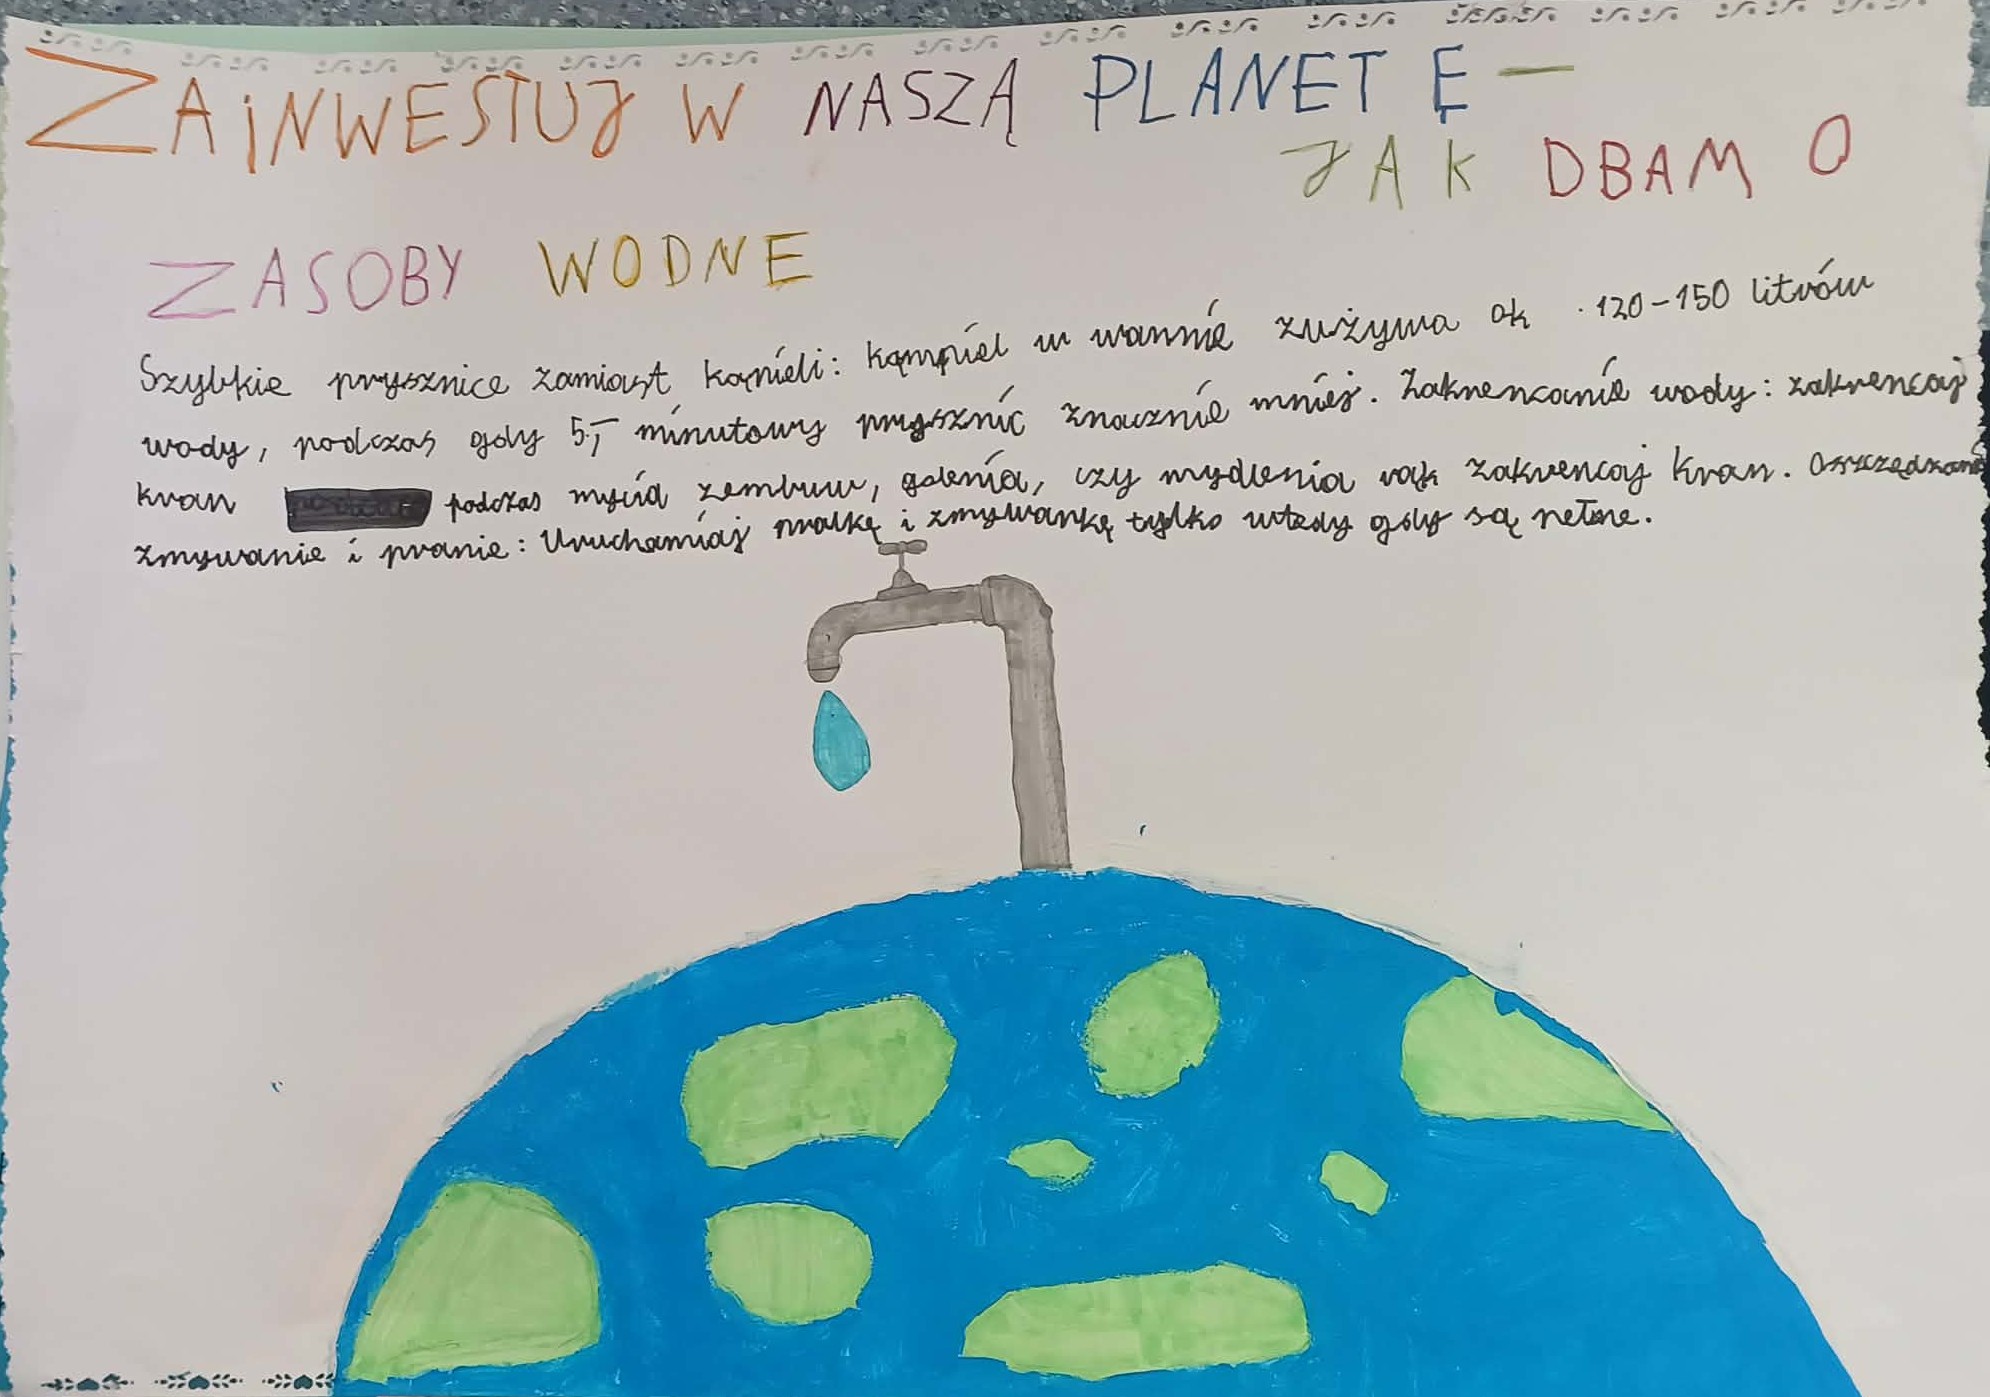 ZAINWESTUJ W NASZĄ PLANETĘ –
JAK DBAM O
ZASOBY WODNE
Szybkie prysznice zamiast kąpieli: Kąmpiel w wannie zużywa ok. 120-150 litrów
wody, podczas gdy 5,- minutowy prysznic znacznie mniej. Zakrencanie wody: zakrencaj
kran podczas mycia zembuw, golenia, czy mydlenia rąk zakrencaj kran. Oszczędzanie
zmywanie i pranie: Uruchamiaj pralkę i zmywankę tylko wtedy gdy są pełne.